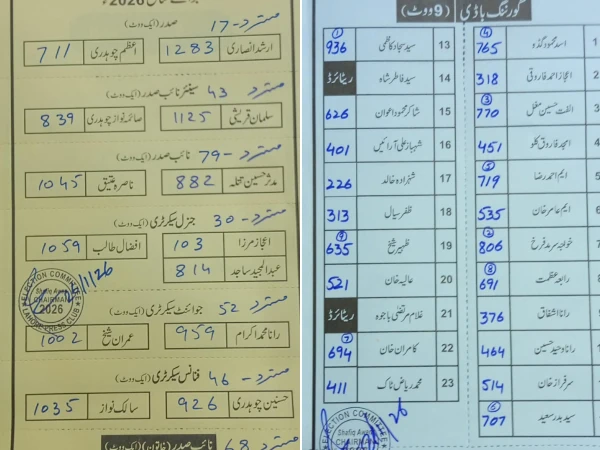 2026ء
مسترد - 17
صدر (ایک ووٹ)
ارشد انصاری 1283 اعظم چوہدری 711
مسترد - 43
سینئر نائب صدر (ایک ووٹ)
سلمان قریشی 1125 صائمہ نواز چوہدری 839
مسترد - 79
نائب صدر (ایک ووٹ)
مدثر حسین تتلہ 882 ناصرہ عتیق 1045
مسترد - 30
جنرل سیکرٹری (ایک ووٹ)
اعجاز مرزا 103 افضال طالب 1059
عبدالمجید ساجد 814
ELECTION COMMITTEE
CHAIRMAN
2026
LAHORE PRESS CLUB
مسترد - 52
جوائنٹ سیکرٹری (ایک ووٹ)
رانا محمد اکرام 959 عمران شیخ 1002
مسترد - 46
فنانس سیکرٹری (ایک ووٹ)
حسنین چوہدری 926 سالک نواز 1035
مسترد - 68
نائب صدر (خاتون) (ایک ووٹ)
گورننگ باڈی (9 ووٹ)
1 اسد محمود گڈہ 765 (4)
اعجاز احمد فاروقی 318
الفت حسین مغل 770 (3)
امجد فاروق کلو 451
ایم احمد رضا 719 (5)
ایم عامر خان 535
خواجہ سرمد فرخ 806 (2)
رابعہ عظمت 691 (8)
رانا اشفاق 376
رانا وحید حسین 464
سرفراز خان 514
سید بدر سعید 707 (6)
13 سید سجاد کاظمی 936 (1)
14 سید فاطر شاہ ریٹائرڈ
15 شاکر محمود اعوان 626
16 شہباز علی آرائیں 401
17 شہزادہ خالد 226
18 ظفر سیال 313
19 ظہیر شیخ 635 (9)
20 عالیہ خان 521
21 غلام مرتضیٰ باجوہ ریٹائرڈ
22 کامران خان 694 (7)
23 محمد ریاض ٹاک 411
ELECTION COMMITTEE
CHAIRMAN